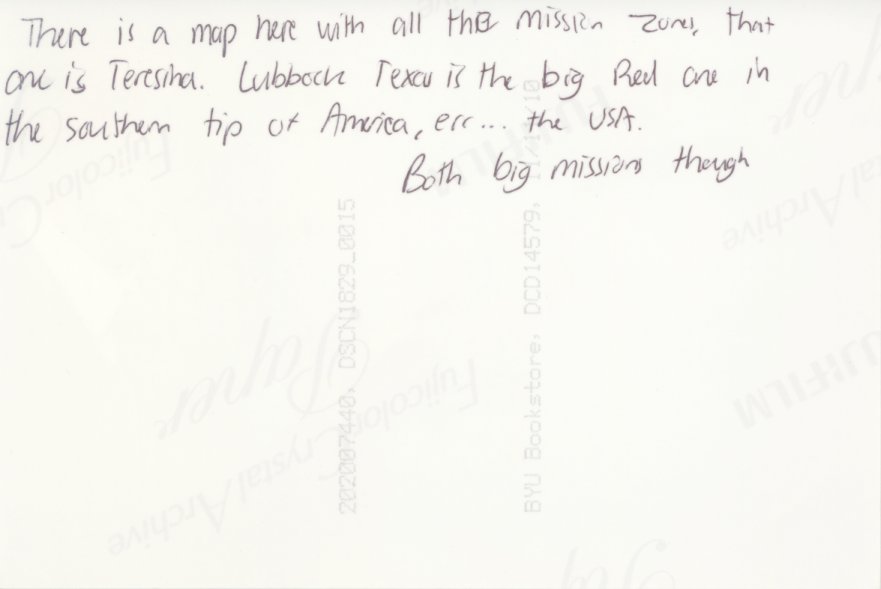 There is a map here with all the mission zones, that
one is Teresina. Lubbock Texas is the big Red one in
the southern tip of America, err... the USA.
Both big missions though
202007440, DSCN1829_0015
BYU Bookstore, DCD14579, 11/1/10
Fujicolor Crystal Archive
Paper
FUJIFILM